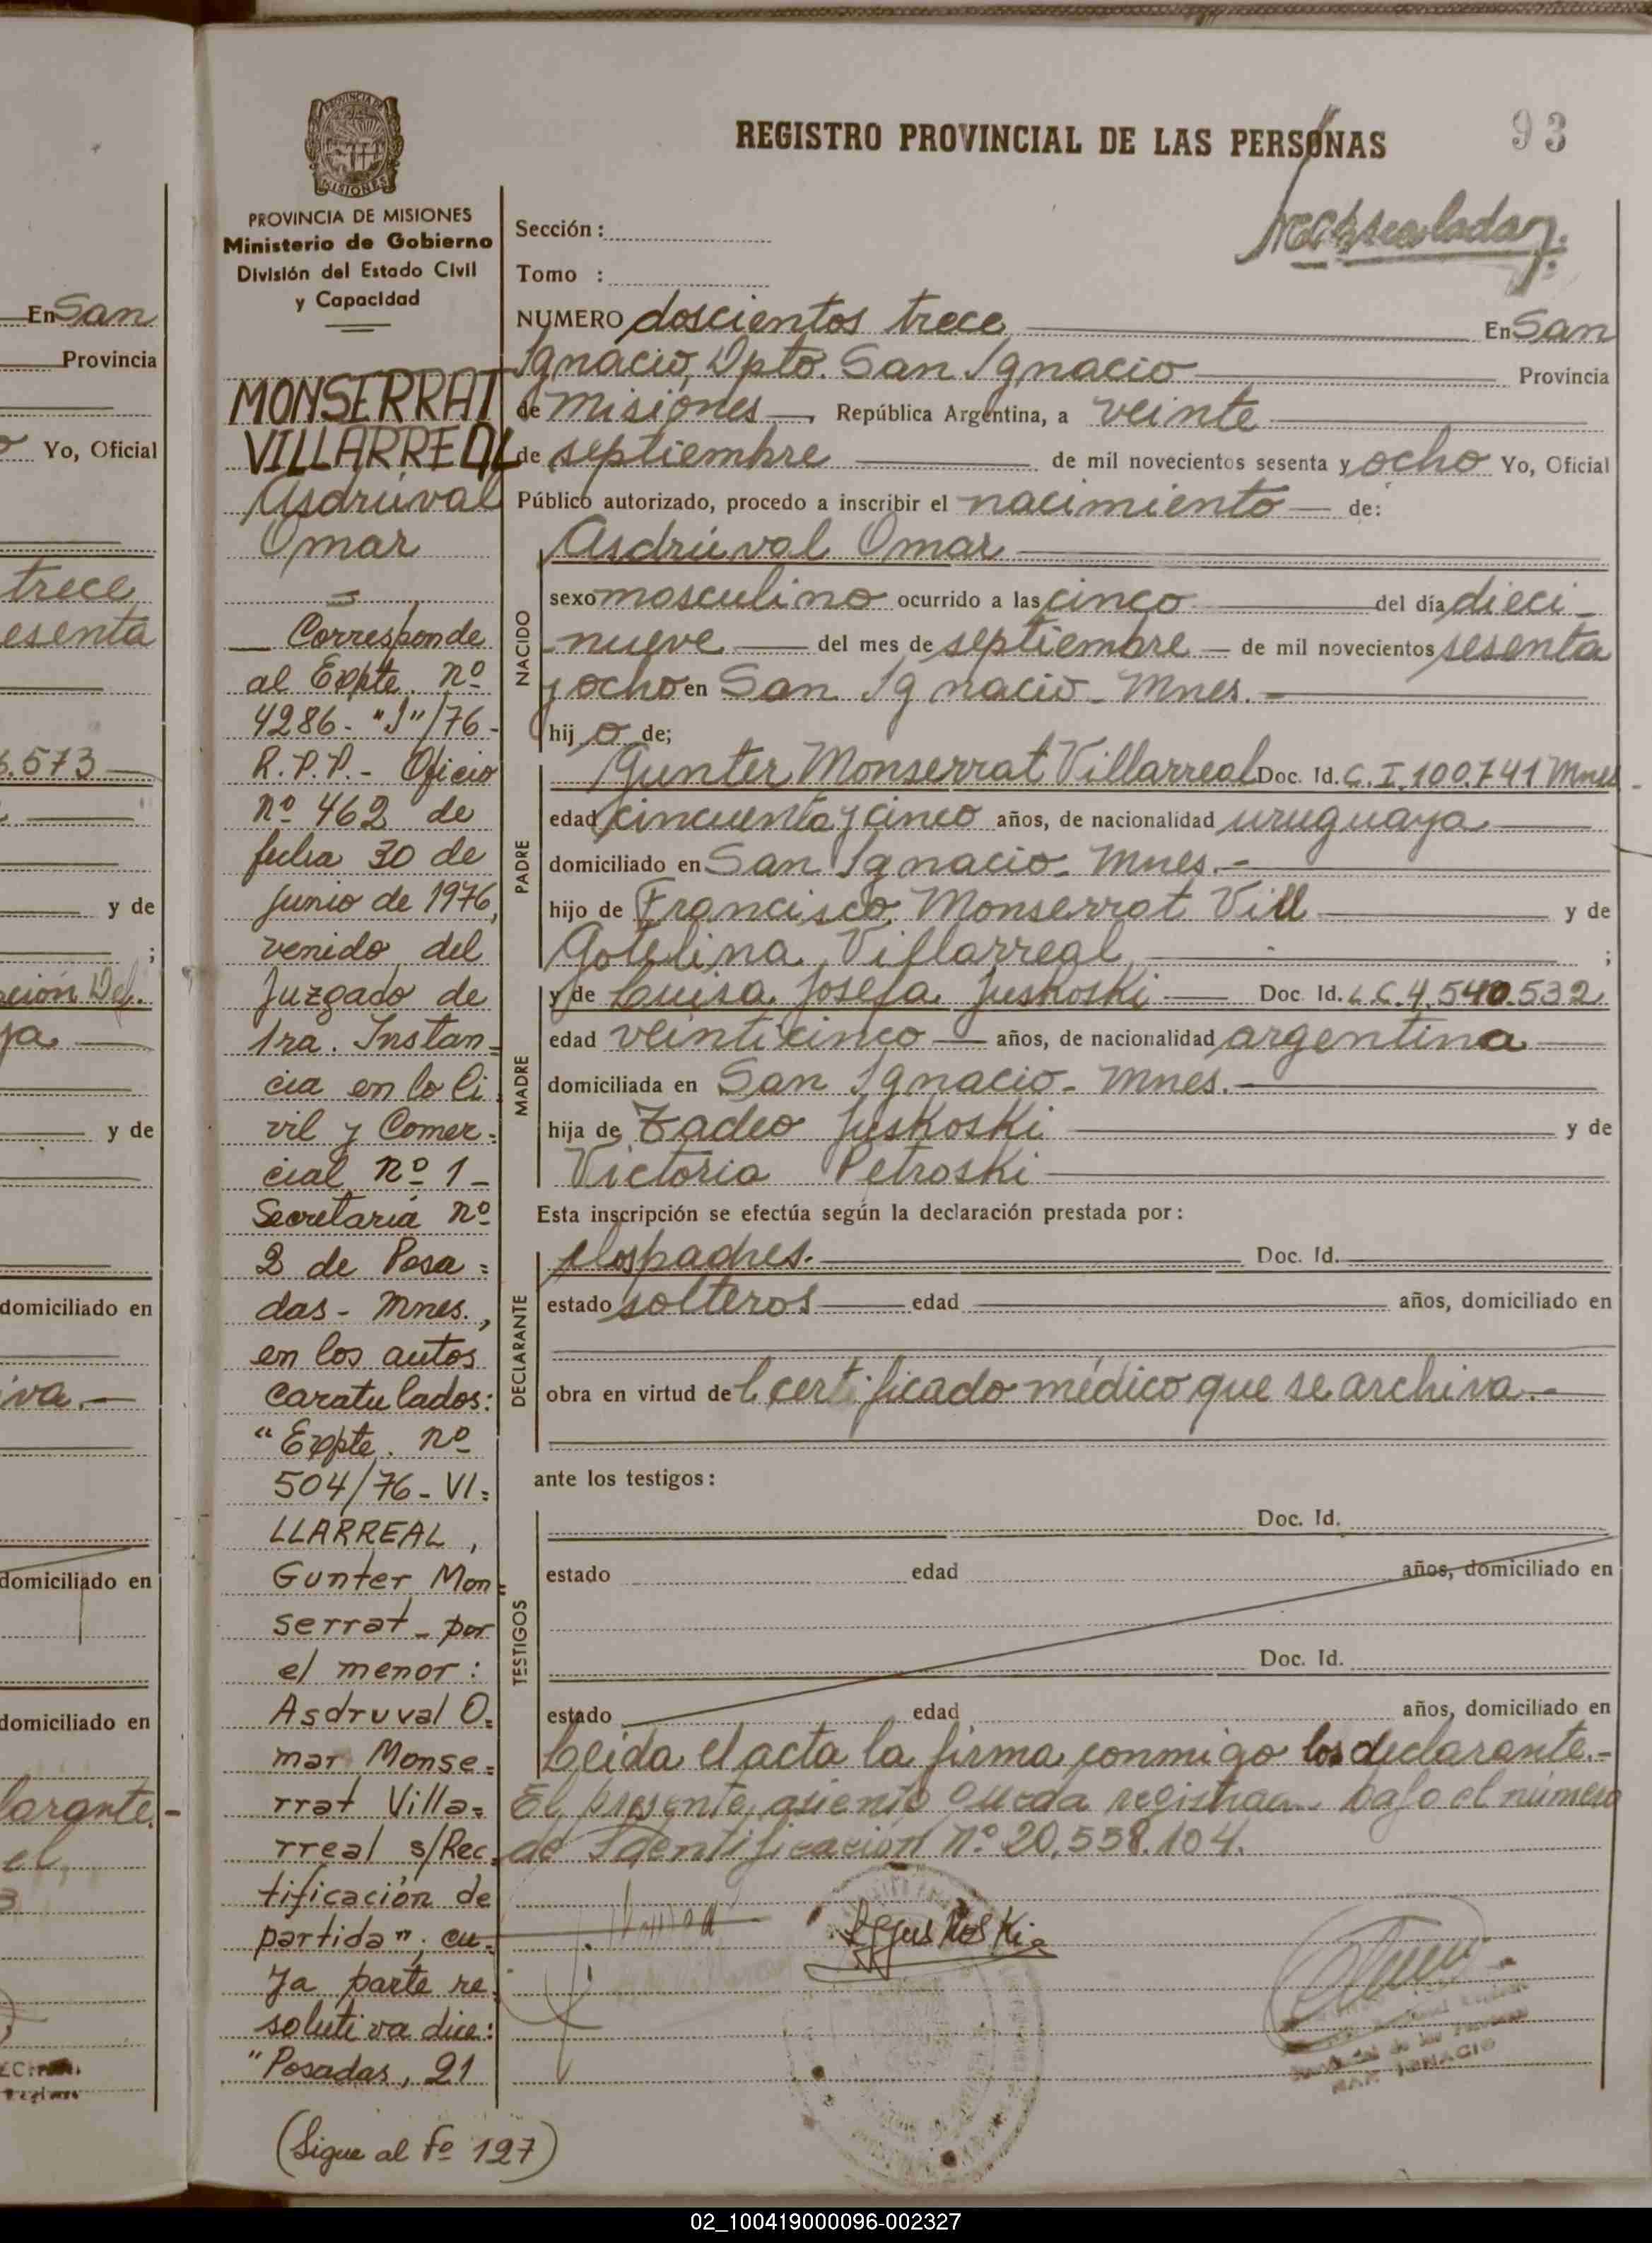 En San
Provincia
Yo, Oficial
trece
esenta
.573
y de
;
ción Def.
ya
y de
domiciliado en
iva.-
domiciliado en
domiciliado en
larante.-
el
3
PROVINCIA DE MISIONES
PROVINCIA DE MISIONES
Ministerio de Gobierno
División del Estado Civil
y Capacidad
MONSERRAT
VILLARREAL
Asdrúval
Omar
Corresponde
al Expte. nº
4286-"J"/76-
R.P.P.- Oficio
nº 462 de
fecha 30 de
junio de 1976,
venido del
Juzgado de
1ra. Instan-
cia en lo Ci
vil y Comer=
cial nº 1-
Secretaría nº
2 de Posa=
das- Mnes.,
en los autos
caratulados:
"Expte. nº
504/76-VI=
LLARREAL,
Gunter Mon=
serrat-por
el menor:
Asdruval O=
mar Monse=
rrat Villa=
rreal s/Rec=
tificación de
partida", cu=
ya parte re
solutiva dice:
"Posadas, 21
(Sigue al Fº 127)
REGISTRO PROVINCIAL DE LAS PERSONAS
93
Sección:
Tomo :
NUMERO doscientos trece En San
Ignacio, Dpto. San Ignacio Provincia
de Misiones, República Argentina, a veinte
de septiembre de mil novecientos sesenta y ocho Yo, Oficial
Público autorizado, procedo a inscribir el nacimiento de:
Asdrúval Omar
NACIDO
sexo masculino ocurrido a las cinco del día dieci-
nueve del mes de septiembre de mil novecientos sesenta
y ocho en San Ignacio- Mnes.-
hijo de;
PADRE
Gunter Monserrat Villarreal Doc. Id. C.I.100.741 Mnes-
edad cincuenta y cinco años, de nacionalidad uruguaya
domiciliado en San Ignacio- Mnes.-
hijo de Francisco Monserrat Vill y de
Gotelina Villarreal ;
MADRE
y de Luisa Josefa Juskoski Doc. Id. L.C.4.540.532
edad veinticinco años, de nacionalidad argentina
domiciliada en San Ignacio- Mnes.-
hija de Tadeo Juskoski y de
Victoria Petroski
Esta inscripción se efectúa según la declaración prestada por:
DECLARANTE
los padres. Doc. Id.
estado solteros edad años, domiciliado en
obra en virtud del certificado médico que se archiva.-
ante los testigos:
TESTIGOS
Doc. Id.
estado edad años, domiciliado en
Doc. Id.
estado edad años, domiciliado en
Leida el acta la firma conmigo los declarante.-
El presente asiento queda registrado bajo el número
de Identificación nº 20.558.104.
LJJuskoski
SAN IGNACIO
02_100419000096-002327